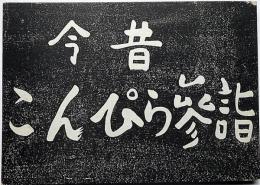 今昔
こんぴら参詣